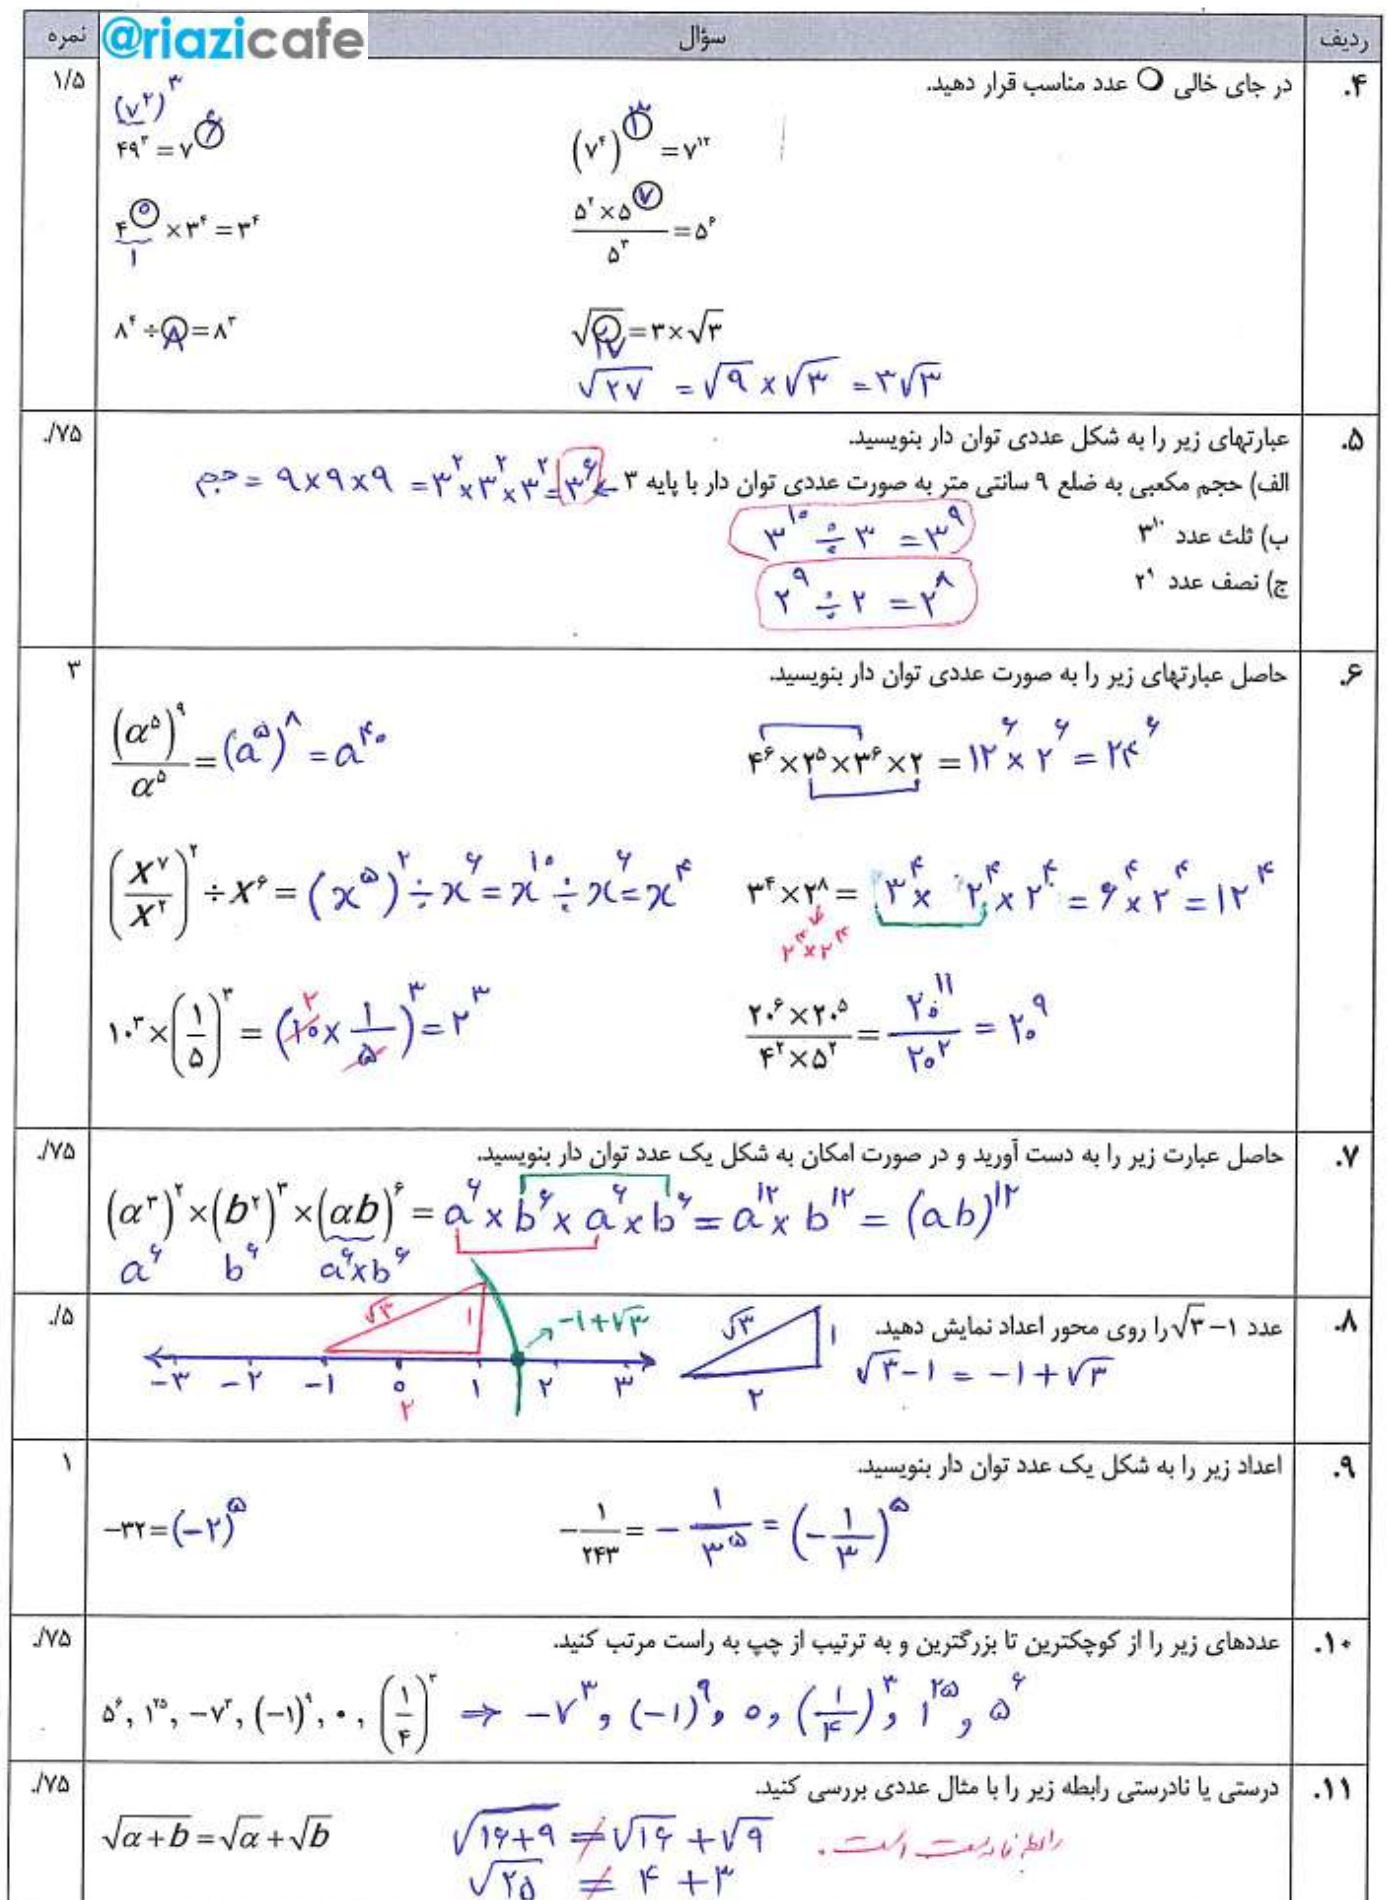 ردیف سؤال نمره @riazicafe
۴. در جای خالی ○ عدد مناسب قرار دهید. ۱/۵
(۷^۲)^۳
۴۹^۳ = ۷^۶
(۷^۴)^۳ = ۷^۱۲
۴^۰ × ۳^۴ = ۳^۴
۱
(۵^۲ × ۵^۷)/۵^۳ = ۵^۶
۸^۴ ÷ ۸ = ۸^۳
√۲۷ = ۳ × √۳
√۲۷ = √۹ × √۳ = ۳√۳
۵. عبارتهای زیر را به شکل عددی توان دار بنویسید. ۰/۷۵
الف) حجم مکعبی به ضلع ۹ سانتی متر به صورت عددی توان دار با پایه ۳ حجم = ۹×۹×۹ = ۳^۲×۳^۲×۳^۲ = ۳^۶
ب) ثلث عدد ۳^۱۰ ۳^۱۰ ÷ ۳ = ۳^۹
ج) نصف عدد ۲^۹ ۲^۹ ÷ ۲ = ۲^۸
۶. حاصل عبارتهای زیر را به صورت عددی توان دار بنویسید. ۳
(α^۵)^۹/α^۵ = (a^۵)^۸ = a^۴۰
۴^۶ × ۲^۵ × ۳^۶ × ۲ = ۱۲^۶ × ۲^۶ = ۲۴^۶
(x^۷/x^۲)^۲ ÷ x^۶ = (x^۵)^۲ ÷ x^۶ = x^۱۰ ÷ x^۶ = x^۴
۳^۴ × ۲^۸ = ۳^۴ × ۲^۴ × ۲^۴ = ۶^۴ × ۲^۴ = ۱۲^۴
۲^۴ × ۲^۴
۱۰^۳ × (۱/۵)^۳ = (۱۰ × ۱/۵)^۳ = ۲^۳
۲
(۲۰^۶ × ۲۰^۵)/(۴^۲ × ۵^۲) = ۲۰^۱۱/۲۰^۲ = ۲۰^۹
۷. حاصل عبارت زیر را به دست آورید و در صورت امکان به شکل یک عدد توان دار بنویسید. ۰/۷۵
(α^۳)^۲ × (b^۲)^۳ × (αb)^۶ = a^۶ × b^۶ × a^۶ × b^۶ = a^۱۲ × b^۱۲ = (ab)^۱۲
a^۶ b^۶ a^۶×b^۶
۸. عدد √۳−۱ را روی محور اعداد نمایش دهید. ۰/۵
√۳−۱ = −۱+√۳
√۳ ۱ ۲
√۳ ۱ −۱+√۳
−۳ −۲ −۱ ۰ ۱ ۲ ۳
۲
۹. اعداد زیر را به شکل یک عدد توان دار بنویسید. ۱
−۳۲ = (−۲)^۵
−۱/۲۴۳ = −۱/۳^۵ = (−۱/۳)^۵
۱۰. عددهای زیر را از کوچکترین تا بزرگترین و به ترتیب از چپ به راست مرتب کنید. ۰/۷۵
۵^۶, ۱^۲۵, −۷^۳, (−۱)^۹, ۰, (۱/۴)^۳ ⇒ −۷^۳ , (−۱)^۹ , ۰ , (۱/۴)^۳ , ۱^۲۵ , ۵^۶
۱۱. درستی یا نادرستی رابطه زیر را با مثال عددی بررسی کنید. ۰/۷۵
√(α+b) = √α + √b
√(۱۶+۹) ≠ √۱۶ + √۹
رابطه نادرست است.
√۲۵ ≠ ۴ + ۳